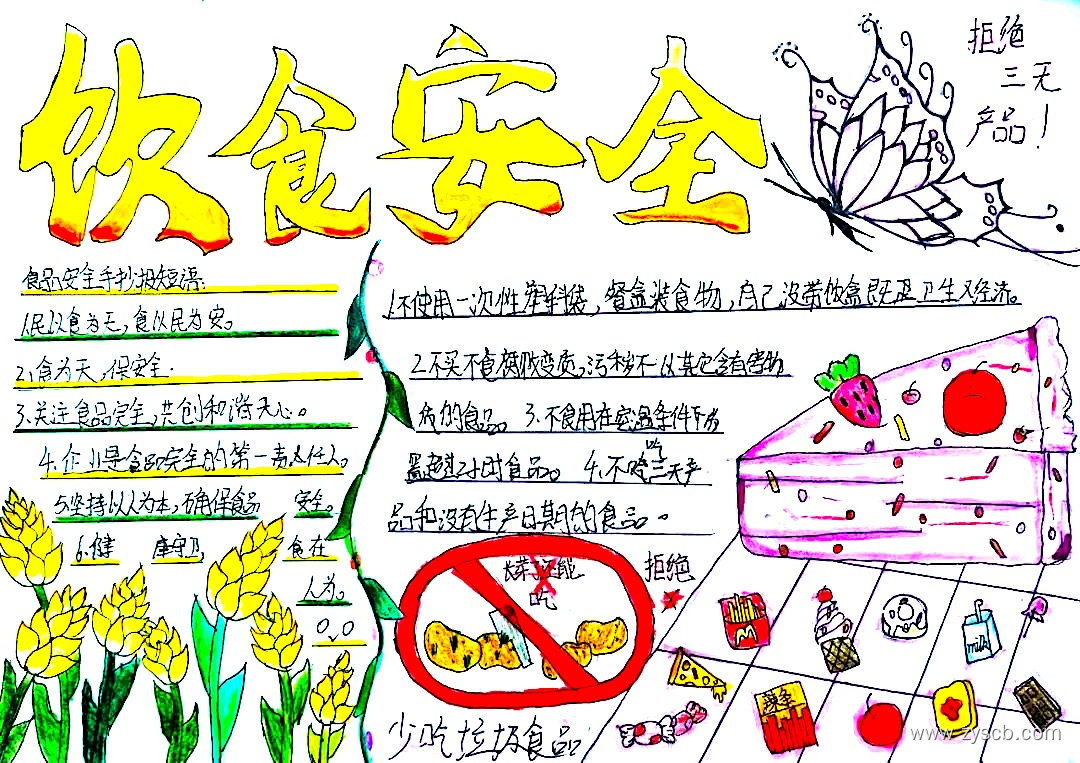 饮食安全
拒绝
三无
产品！
食品安全手抄报短语:
1.民以食为天,食以民为安。
2.食为天,保安全.
3.关注食品安全,共创和谐天心。
4.企业是食品安全的第一责任人。
5.坚持以人为本,确保食品 安全。
6.健 康守卫, 食在
人为。
1.不使用一次性塑料袋,餐盒装食物,自己没带饭盒既卫生又经济。
2.不买不食腐败变质,污秽不 以其它含有害物
质的食品。 3.不食用在室温条件下放
置超过2小时食品。 4.不吃三无产
品和没有生产日期的食品。
吃
拒绝
少吃垃圾食品
M
milk
辣条
www.zyscb.com